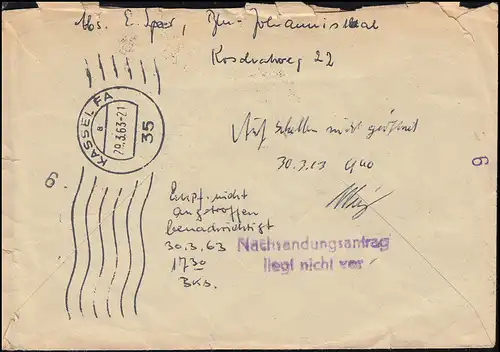 Abs. E. Spar, Bln-Johannisthal
22
KASSEL FA
a
20.3.63-21
35
Auf Schellen nicht geöffnet
30.3.63 900
6
6
Empf. nicht
angetroffen
benachrichtigt
30.3.63
17 30
Nachsendungsantrag
liegt nicht vor